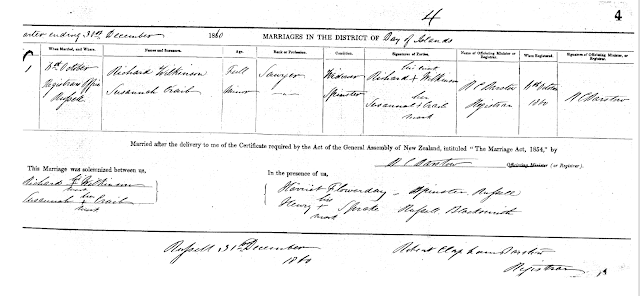 4
4
arter ending 31st December 1860 MARRIAGES IN THE DISTRICT OF Bay of Islands
When Married, and Where. Names and Surnames. Age. Rank or Profession. Condition. Signatures of Parties. Name of Officiating Minister or Registrar. When Registered. Signature of Officiating Minister, or Registrar.
1 October Richard Wilkinson Full Sawyer Widower Richard x Wilkinson R C Barstow 1860 R C Barstow
Registrars Office Russell Susannah Crail Minor — Spinster Susannah x Crail Registrar
her mark
Married after the delivery to me of the Certificate required by the Act of the General Assembly of New Zealand, intituled "The Marriage Act, 1854," by
R C Barstow Officiating Minister (or Registrar).
This Marriage was solemnized between us,
Richard x Wilkinson
Susannah x Crail
her mark
In the presence of us,
Harriet Flowerday - Spinster Russell
Henry x Sprake Russell Blacksmith
his mark
Russell 31st December
1860
Robert Clapham Barstow
Registrar